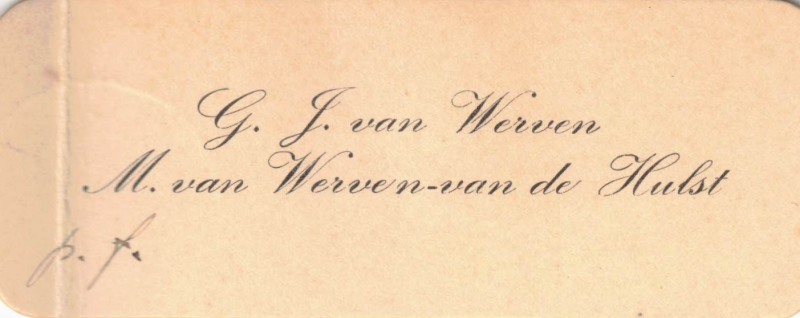 G. J. van Werven
M. van Werven-van de Hulst
p. f.